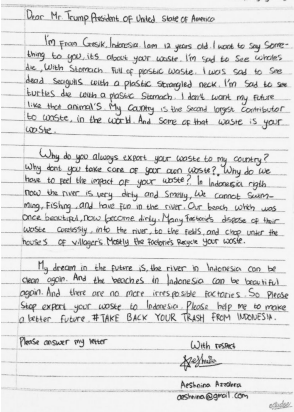 Dear Mr Trump President of United State of America
I'm From Gresik, Indonesia. I am 12 years old. I want to say Some-
thing to you, its about your waste. I'm Sad to See whale's
die, With Stomach full of plastic waste. I was sad to See
dead Seagulls with a plastic strangled neck. I'm Sad to see
turtles die with a plastic stomach. I don't want my future
like that animal's. My Country is the Second largest contributor
to waste, in the world. And Some of that waste is your
waste.
Why do you always export your waste to my country?
Why dont you take care of your own waste? Why do we
have to feel the impact of your waste? In Indonesia rigth
now the river is very dirty and Smelly, We cannot Swim-
ming, Fishing, and have fun in the river. Our beach which was
once beautiful, now become dirty. Many factories dispose of their
waste carelessly, into the river, to the fields, and also under the
house's of villager's Mostly the factories Recycle your waste.
My dream in the future is, the river in Indonesia can be
clean again. And the beaches in Indonesia can be beautiful
again. And there are no more Factories. So please
Stop export your waste to Indonesia. Please help me to make
a better future. #TAKE BACK YOUR TRASH FROM INDONESIA.
Please answer my letter
With respect
Aeshnina Azzahra
aeshnina@gmail.com